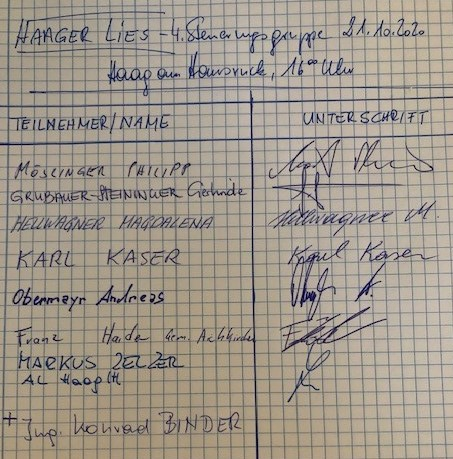 HAAGER LIES - 4. Steuerungsgruppe 21.10.2020
Haag am Hausruck, 16⁰⁰ Uhr
TEILNEHMER/NAME UNTERSCHRIFT
MÖSLINGER PHILIPP
GRUBAUER-STEININGER Gerlinde
HELLWAGNER MAGDALENA Hellwagner M.
KARL KASER Karl Kaser
Obermayr Andreas
Franz Haider Gem.
MARKUS ZELZER
AL Haag/H
+ Ing. Konrad BINDER